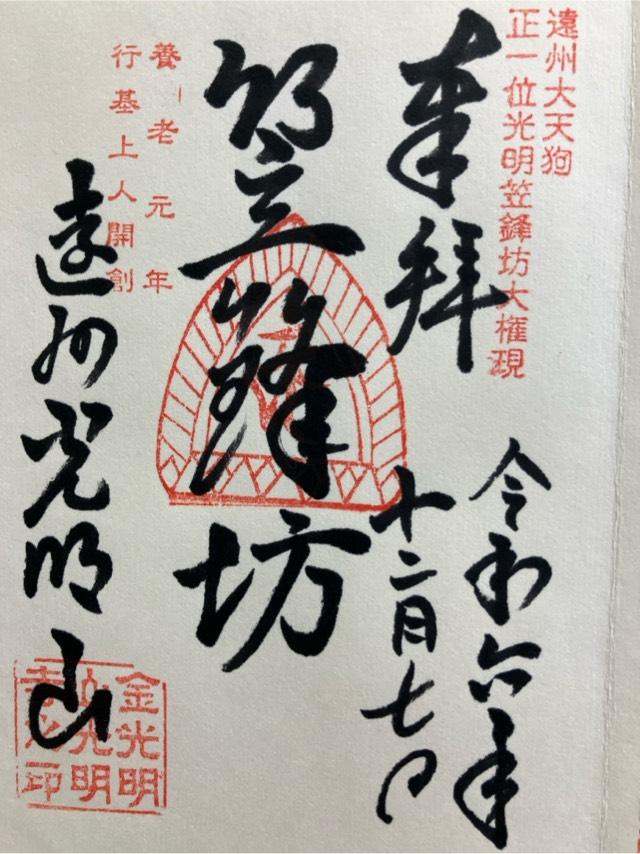 遠州大天狗
正一位光明笠鋒坊大権現
奉拝
令和六年
十二月七日
笠鋒坊
養老元年
行基上人開創
遠州光明山
金光明
山光明